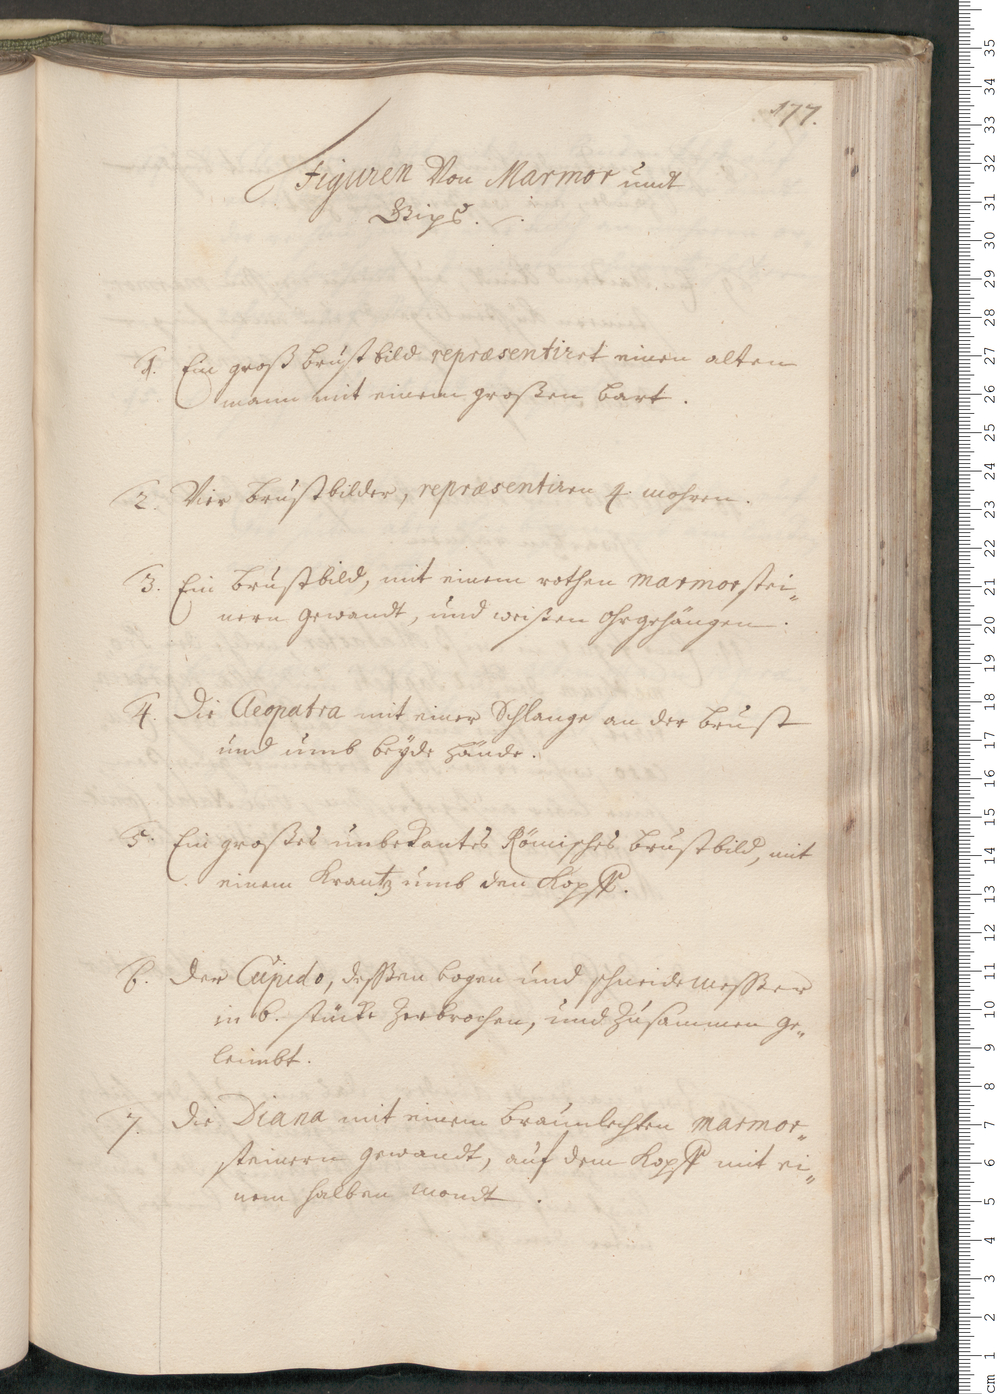 177.
Figuren Von Marmor undt
Gips.
1. Ein groß brustbild repræsentirt einen alten
mann mit einem großen bart.
2. Vier brustbilder, repræsentiren 4. mohren.
3. Ein brustbild, mit einem rothen marmorstei„
nern gewandt, und weißen ohrgehängen.
4. Die Cleopatra mit einer Schlange an der brust
und umb beÿde hände.
5. Ein großes unbekantes Römisches brustbild, mit
einem Krantz umb den Kopff.
6. Der Cupido, dessen bogen und schneidemesser
in 6. stücke zerbrochen, und zusammen ge„
leimbt.
7. Die Diana mit einem braunlechten marmor„
steinern gewandt, auf dem Kopff mit ei„
nem halben mondt.
35
34
33
32
31
30
29
28
27
26
25
24
23
22
21
20
19
18
17
16
15
14
13
12
11
10
9
8
7
6
5
4
3
2
1
cm